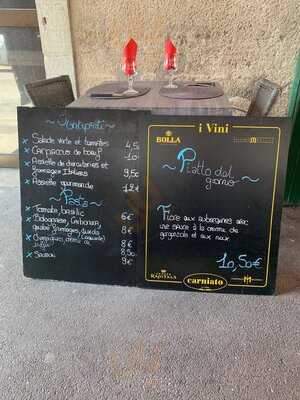 ~ Antipasti ~
Salade verte et tomates 4,5
Carpaccio de boeuf 10
Assiette de charcuteries et
fromages Italiens 9,5€
Assiette gourmande 12€
~ Pasta ~
Tomate, basilic 6€
Bolognaise, Carbonara, 8€
quatre fromages,
8€
8,50
Saumon 9€
i Vini
BOLLA
~ Piatto del
giorno ~
Fiore aux aubergines avec
une sauce à la crème de
gorgonzola et aux noix
10,50€
carniato